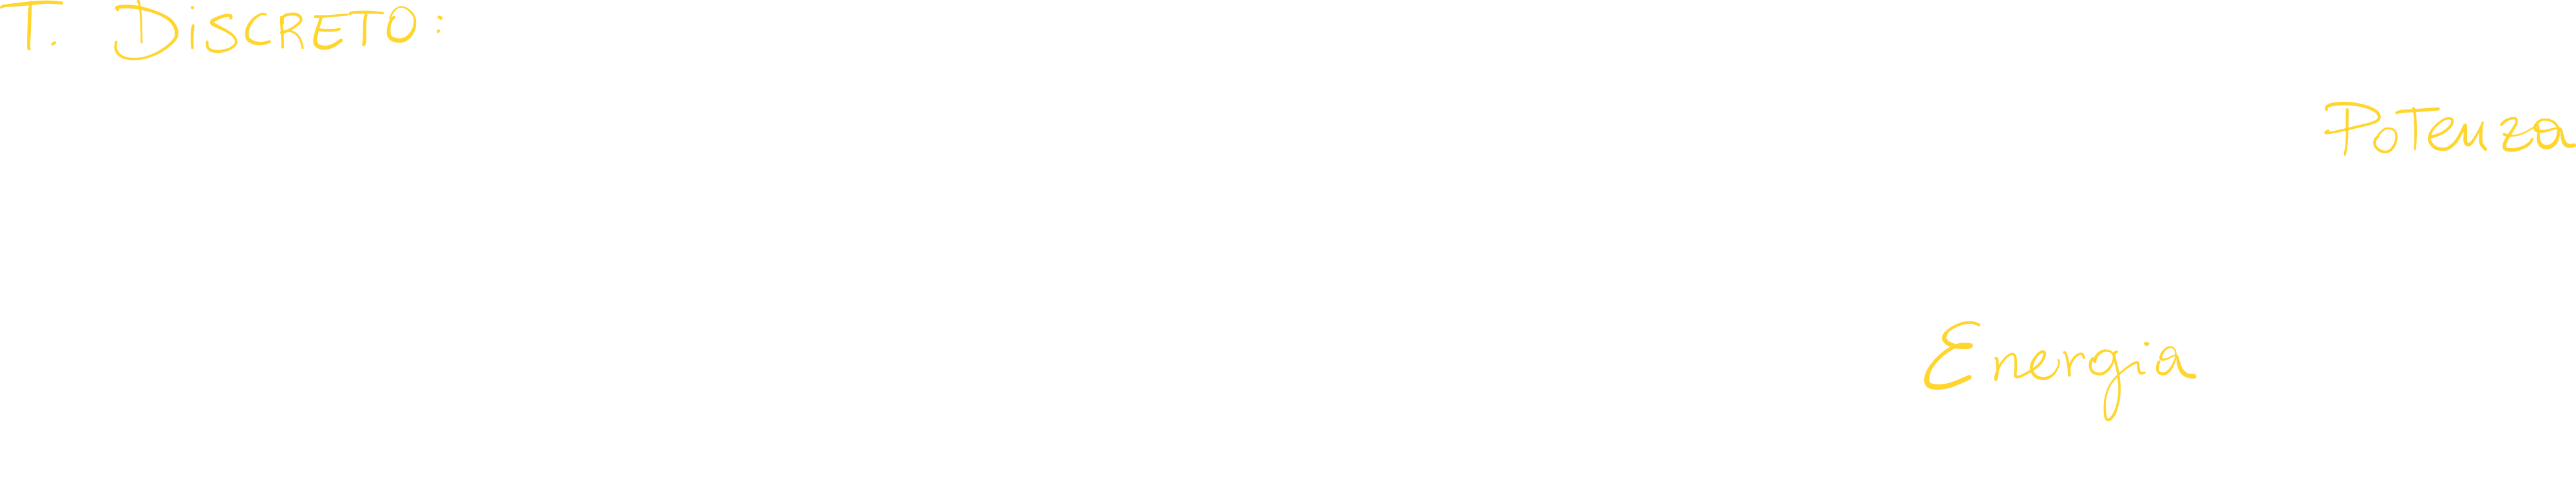 T. DiSCRETO:
PoTenza
Energia